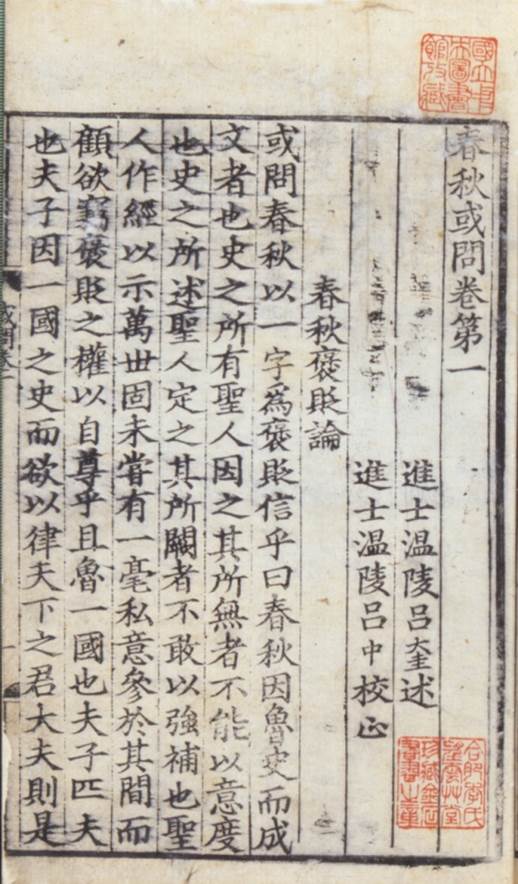 春秋或問卷第一
進士温陵吕大圭述
進士温陵吕中校正
春秋褒貶論
或問春秋以一字爲褒貶信乎曰春秋因魯史而成
文者也史之所有聖人因之其所無者不能以意度
也史之所述聖人定之其所闕者不敢以強補也聖
人作經以示萬世固未嘗有一毫私意參於其間而
顧欲竊褒貶之權以自尊乎且魯一國也夫子匹夫
也夫子因一國之史而欲以律天下之君大夫則是